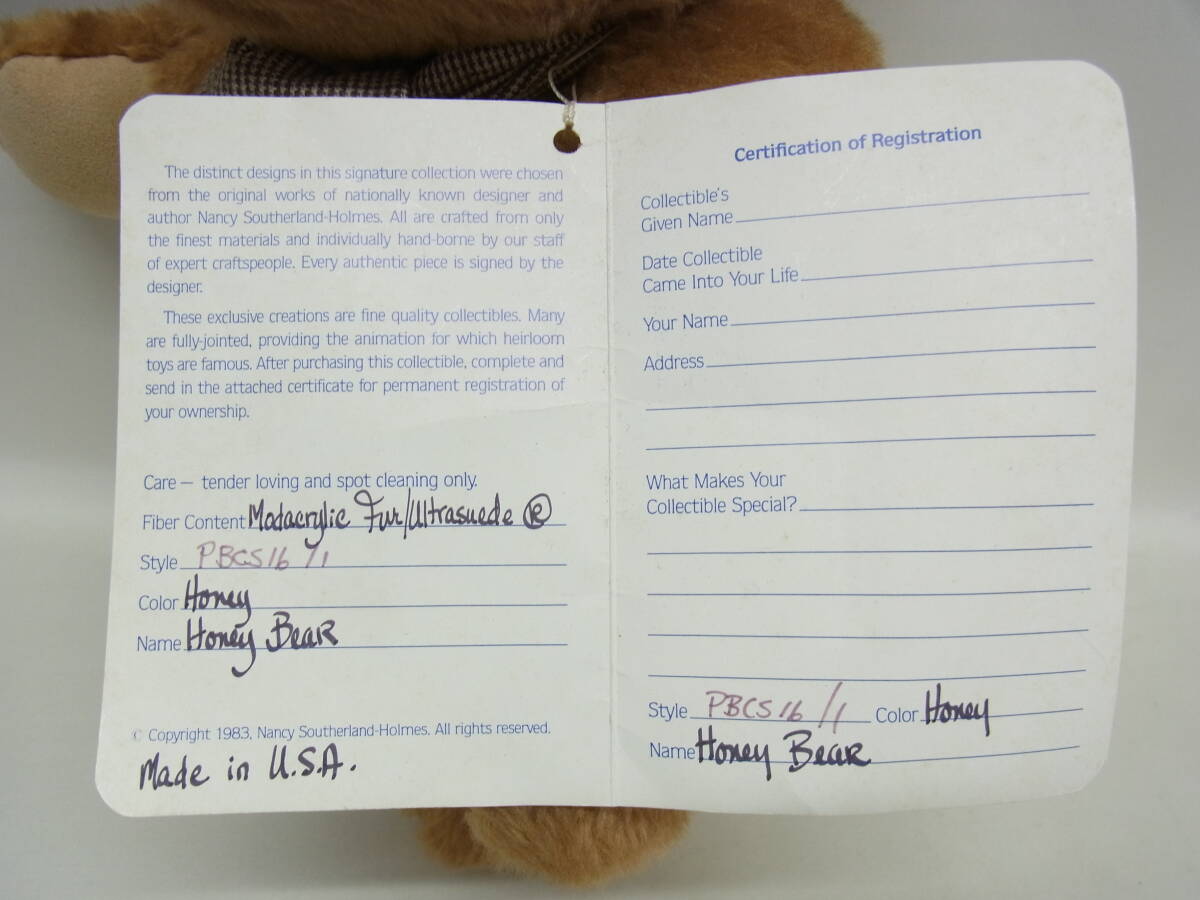 The distinct designs in this signature collection were chosen
from the original works of nationally known designer and
author Nancy Southerland-Holmes. All are crafted from only
the finest materials and individually hand-borne by our staff
of expert craftspeople. Every authentic piece is signed by the
designer.
These exclusive creations are fine quality collectibles. Many
are fully-jointed, providing the animation for which heirloom
toys are famous. After purchasing this collectible, complete and
send in the attached certificate for permanent registration of
your ownership.
Care — tender loving and spot cleaning only.
Fiber Content Modacrylic Fur/Ultrasuede ®
Style PBCS16 /1
Color Honey
Name Honey Bear
© Copyright 1983, Nancy Southerland-Holmes. All rights reserved.
Made in U.S.A.
Certification of Registration
Collectible's
Given Name
Date Collectible
Came Into Your Life
Your Name
Address
What Makes Your
Collectible Special?
Style PBCS16 /1 Color Honey
Name Honey Bear